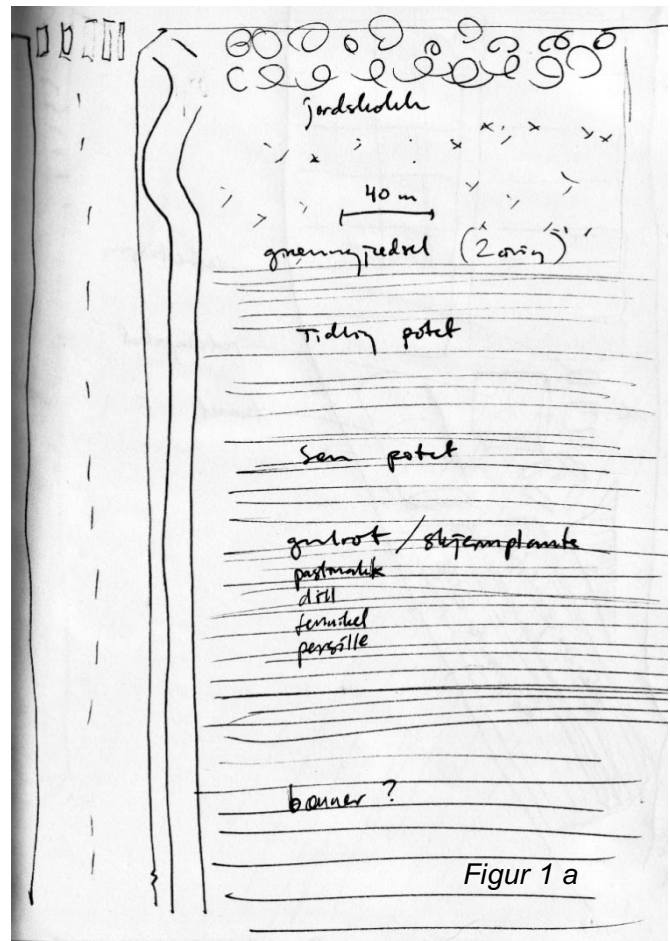 jordskokk
40 m
grønngjødsel (2 årig)
Tidlig potet
Sen potet
gulrot / skjermplante
pastinakk
dill
fennikel
persille
bønner ?
Figur 1 a